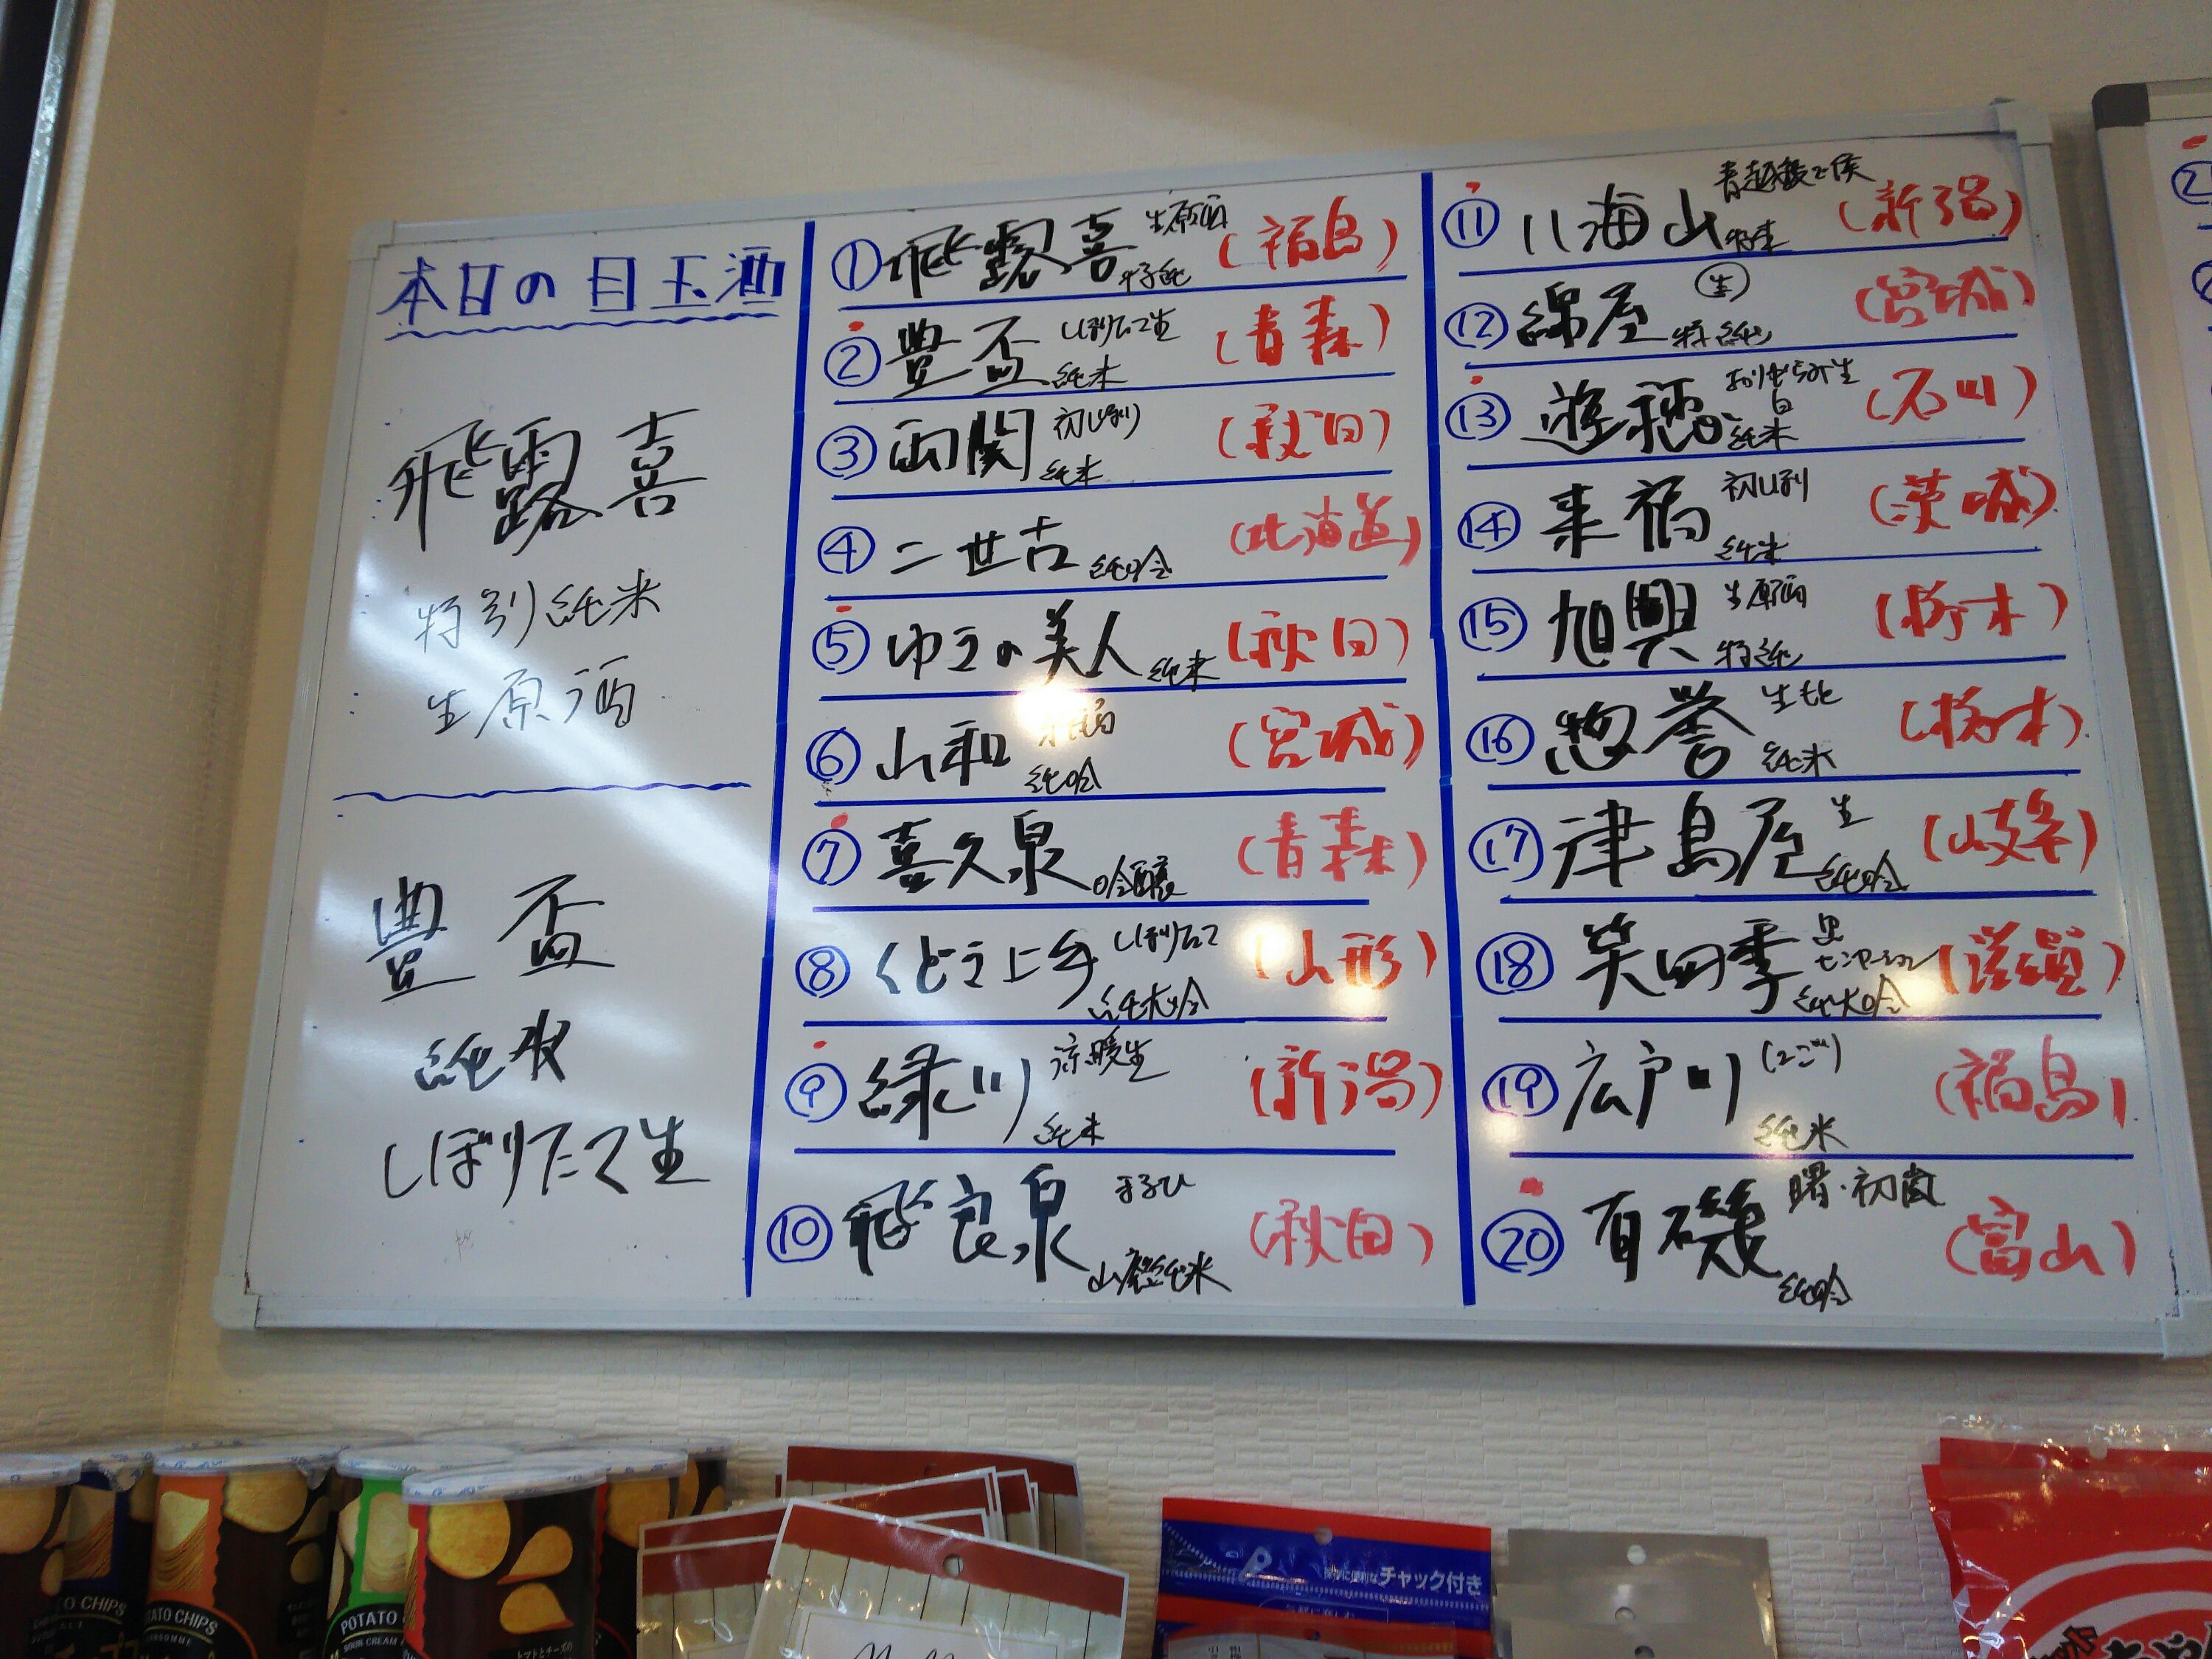 本日の目玉酒
飛露喜
特別純米
生原酒
豊盃
純米
しぼりたて生
① 飛露喜 生原酒 特純 (福島)
② 豊盃 しぼりたて生 純米 (青森)
③ 両関 初しぼり 純米 (秋田)
④ 二世古 純吟 (北海道)
⑤ ゆきの美人 純米 (秋田)
⑥ 山和 純吟 (宮城)
⑦ 喜久泉 吟醸 (青森)
⑧ くどき上手 しぼりたて 純大吟 (山形)
⑨ 緑川 涼暖生 純米 (新潟)
⑩ 飛良泉 まるひ 山廃純米 (秋田)
⑪ 八海山 (新潟)
⑫ 綿屋 生 特純 (宮城)
⑬ 遊穂 おりがらみ生 白 純米 (石川)
⑭ 来福 初しぼり 純米 (茨城)
⑮ 旭興 生原酒 特純 (栃木)
⑯ 惣誉 生酛 純米 (栃木)
⑰ 津島屋 生 純吟 (岐阜)
⑱ 笑四季 黒 センセーション 純大吟 (滋賀)
⑲ 広戸川 (にごり) 純米 (福島)
⑳ 有磯 曙・初嵐 純吟 (富山)
POTATO CHIPS
POTATO
SOUR CREAM
チャック付き